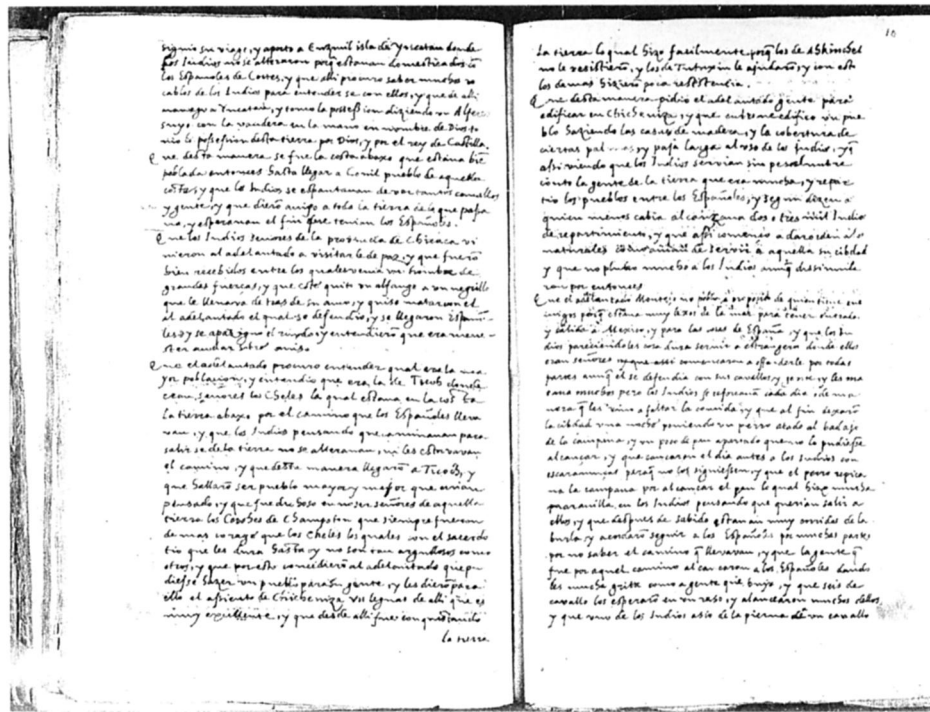 siguio su viage, y aporto a Cuzmil isla de Yucatan donde
los Indios no se alteraron porq̃ estavan domesticados cõ
los Españoles de Cortes, y que alli procuro saber muchos vo
cablos de los Indios para entender se con ellos, y que de alli
navego a Yucatan, y tomo la possession diziendo un Alfe
suyo con la vandera en la mano en nombre de Dios to
mo la possession desta tierra por Dios, y por el rey de Castilla.
Que desta manera se fue la costa abaxo que estava biẽ
poblada entonces hasta llegar a Conil pueblo de aquella
costa, y que los Indios se espantavan de ver tantos cavallos
y gente, y que dierõ aviso a toda la tierra de lo que passa
va, y esperavan el fin que tenian los Españoles.
Que los Indios señores de la provincia de Chicaca vi
nieron al adelantado a visitar le de paz, y que fuerõ
bien recebidos entre los quales venia un hombre de
grandes fuerças, y que este quito un alfange a un negrillo
que le llevava detras de su amo, y quiso matar con el
al adelantado el qual se defendio, y se llegaron Españo
les y se apaziguo el ruydo, y entendierõ que era mene
ster andar sobre aviso.
Que el adelantado procuro entender qual era la ma
yor poblacion, y entendio que era la de Tecoh donde
eran señores los Cheles la qual estava en la costa
la tierra abaxo por el camino que los Españoles lleva
van, y que los Indios pensando que caminavan para
salir se de la tierra no se alteravan, ni les estorvavan
el camino, y que desta manera llegarõ a Ticoh, y
que hallarõ ser pueblo mayor y mejor que avian
pensado, y que fue dichoso no ser señores de aquella
tierra los Covohes de Champoton que siempre fueron
de mas corage que los Cheles los quales con el sacerdo
tio que les dura hasta oy no son tan argullosos como
otros, y que por esto concedierõ al adelantado que pu
diesse hazer un pueblo para su gente, y les dierõ para
ello el assiento de Chicheniza vii leguas de alli que es
muy excellente, y que desde alli fue conquistando
la tierra
10
La tierra lo qual hizo facilmente, porq̃ los de Ahkinchel
no le resistierõ, y los de Tutuxiu le ajudarõ, y con esto
los demas hizierõ poca resistencia.
Que desta manera pidio el adelantado gente para
edificar en Chicheniza, y que en breve edifico un pue
blo haziendo las casas de madera, y la cobertura de
ciertas palmas, y paja larga al uso de los Indios, y q̃
assi viendo que los Indios servian sin pesadumbre
conto la gente de la tierra que era mucha, y repar
tio los pueblos entre los Españoles, y segun dizen a
quien menos cabia alcançava dos o tres mil Indios
de repartimiento, y que assi començo a dar orden a los
naturales como avian de servir a aquella su cibdad
y que no plugo mucho a los Indios aunq̃ dissimula
ron por entonces
Que el adelantado Montejo no poblo a proposito de quien tiene ene
migos porq̃ estava muy lexos de la mar para tener entrada
y salida a Mexico, y para las cosas de España, y que los In
dios pareciendoles cosa dura servir a estrangeros donde ellos
eran señores començaron a offenderle por todas
partes aunq̃ el se defendia con sus cavallos, y gente, y les ma
tava muchos pero los Indios se reforçavan cada dia de ma
nera q̃ les vino a faltar la comida, y que al fin dexarõ
la cibdad una noche poniendo un perro atado al badajo
de la campana, y un poco de pan apartado que no lo pudiesse
alcançar, y que cansaron el dia antes a los Indios con
escaramuças paraq̃ no los siguiessen, y que el perro repica
va la campana por alcançar el pan lo qual hizo mucha
maravilla en los Indios pensando que querian salir a
ellos, y que despues de sabido estavan muy corridos de la
burla, y acordarõ seguir a los Españoles por muchas partes
por no saber el camino q̃ llevavan, y que la gente q̃
fue por aquel camino alcançaron a los Españoles dando
les mucha grita como a gente que huyo, y que seis de
cavallo los esperarõ en un raso, y alancearon muchos dellos,
y que uno de los Indios asio de la pierna de un cavallo